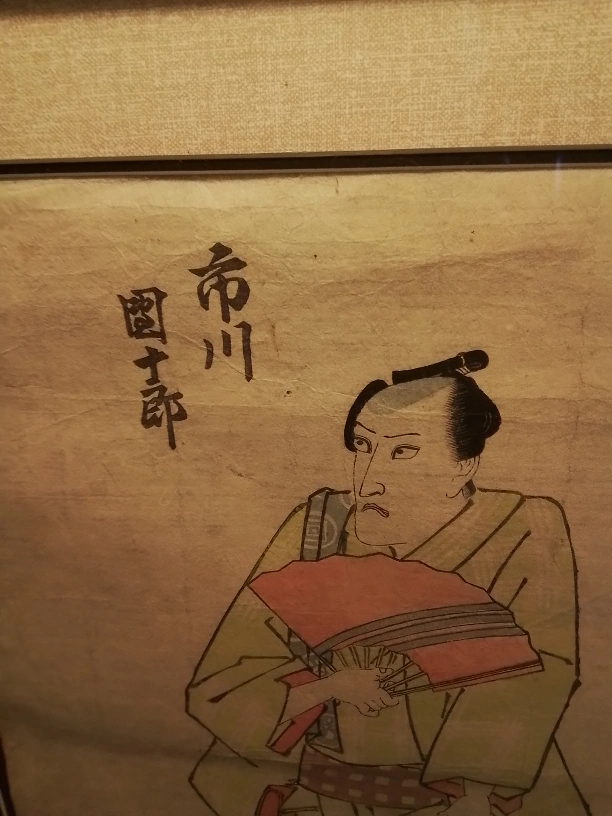 市川
團十郎